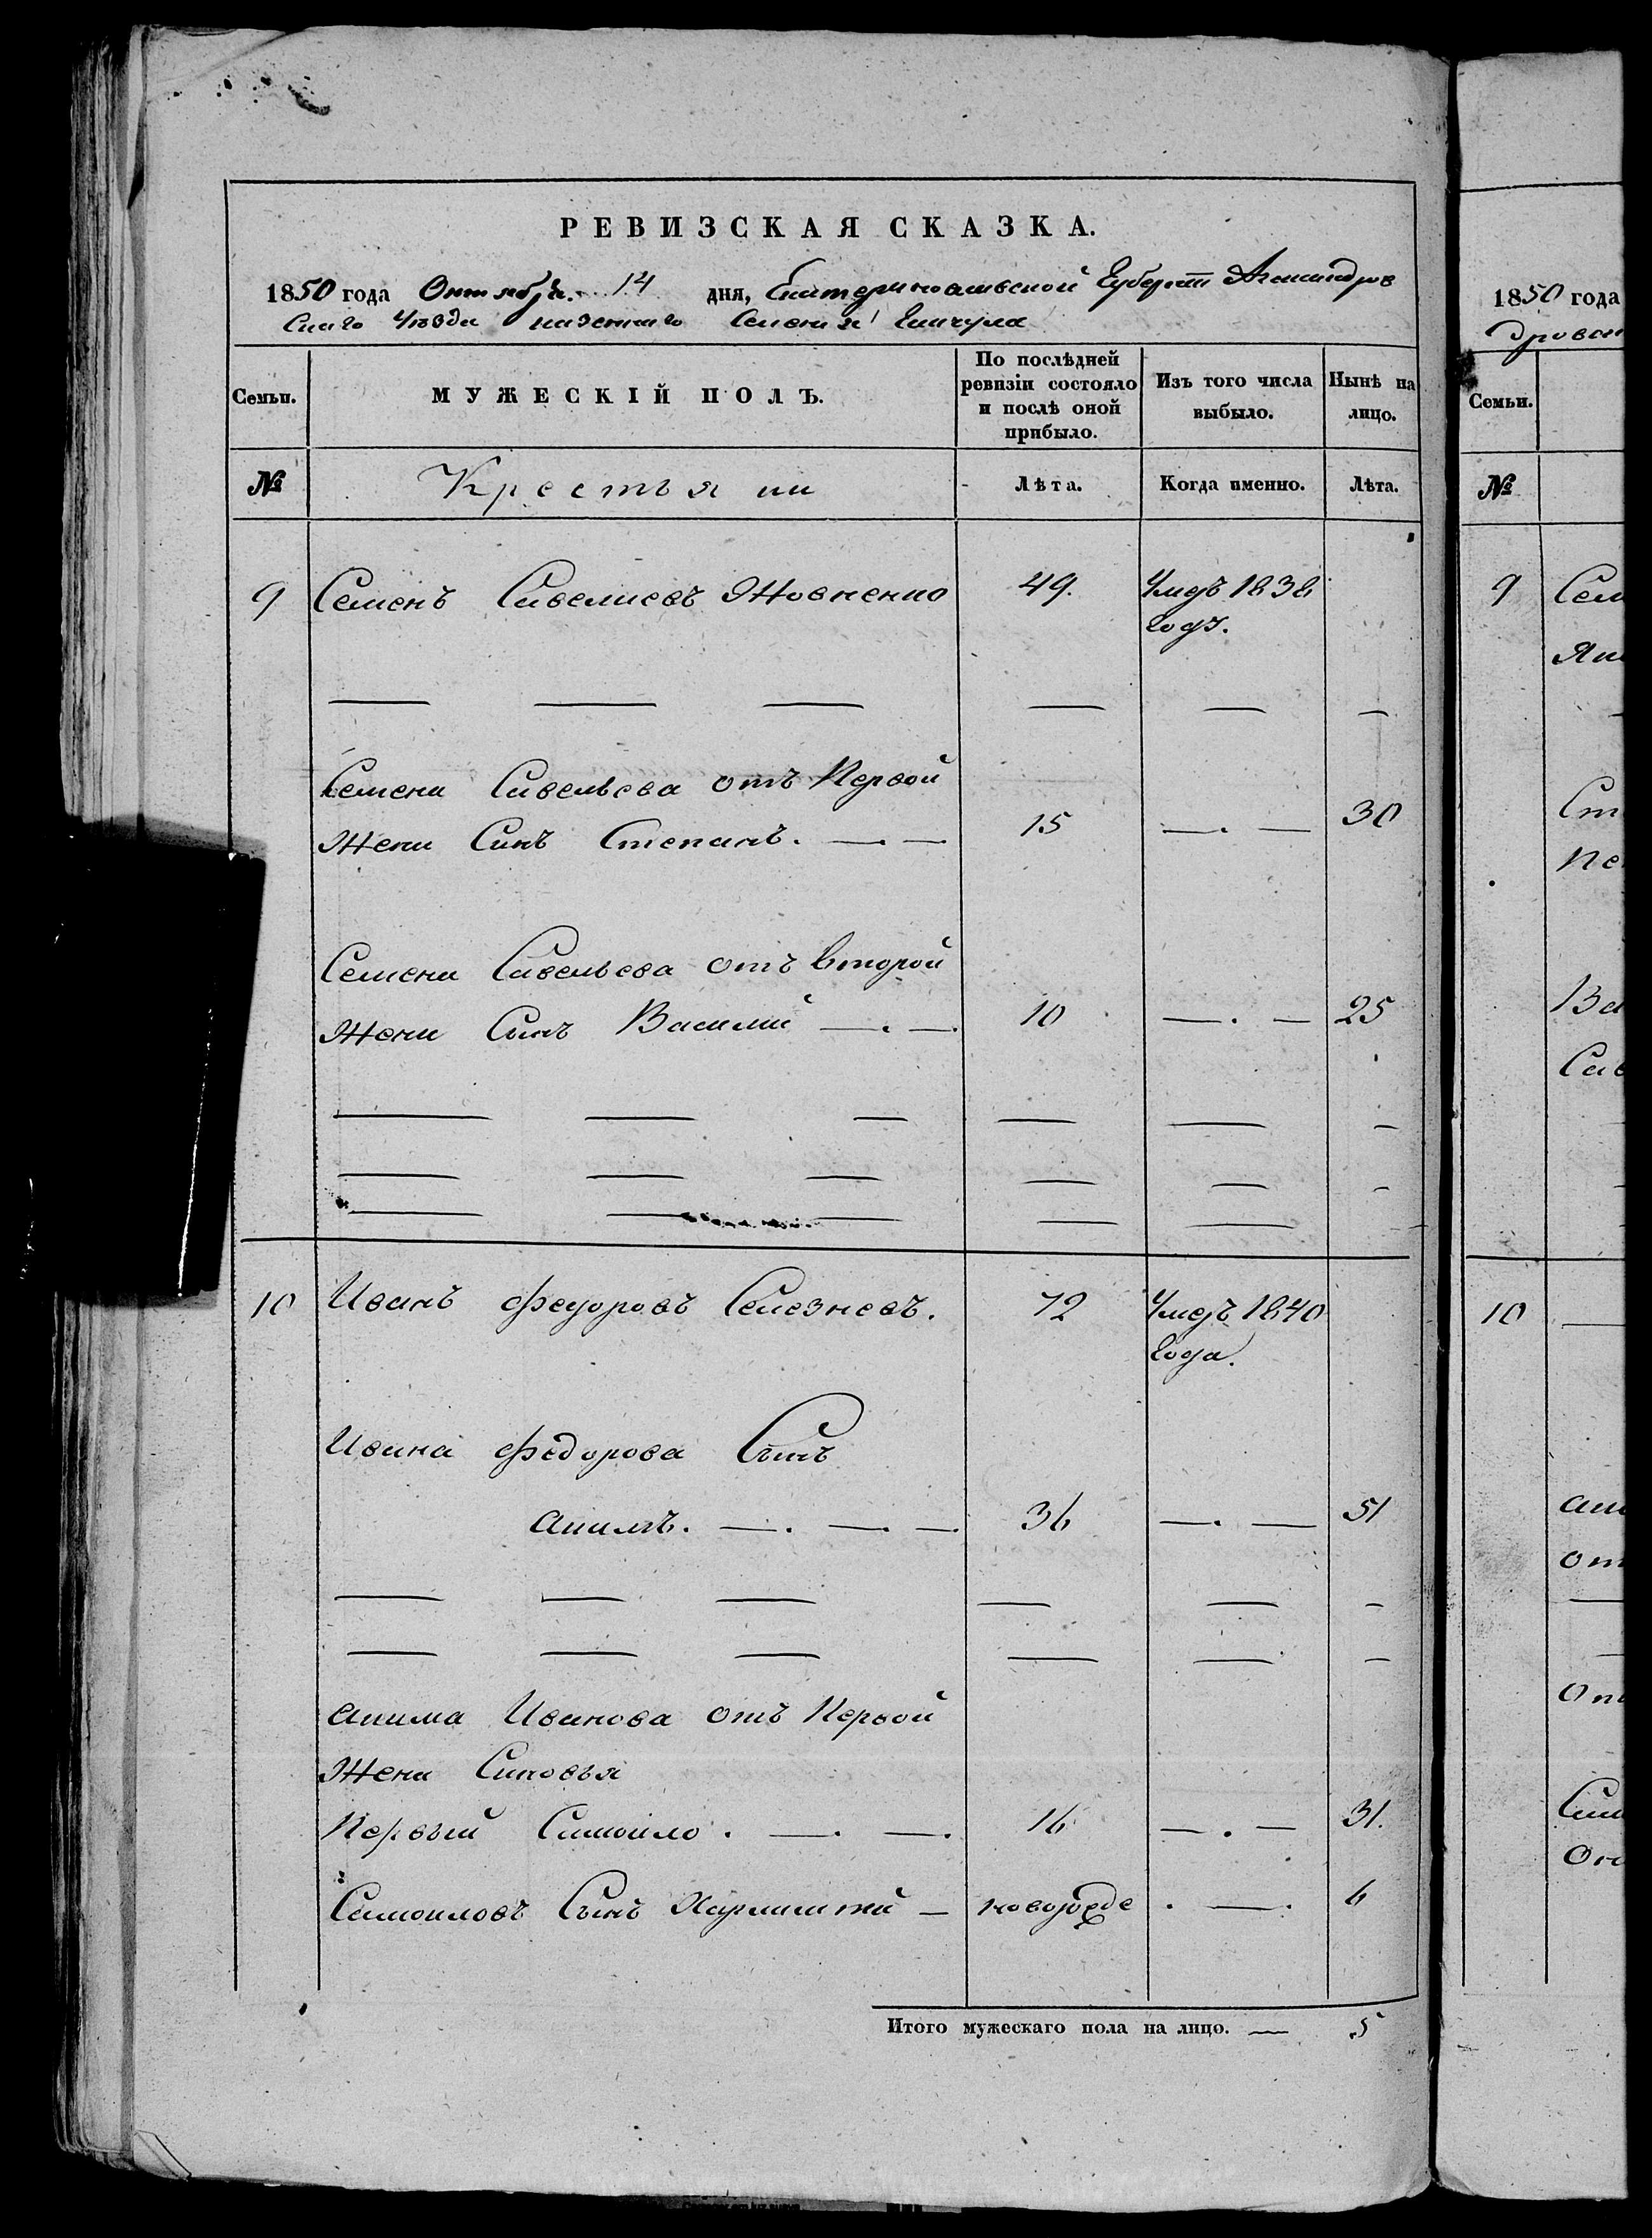 РЕВИЗСКАЯ СКАЗКА.
1850 года Октября 14 дня, Екатеринославской Губерніи Александров
скаго Уезда казеннаго Селенія
Семьи. МУЖЕСКІЙ ПОЛЪ. По послѣдней ревизіи состояло и послѣ оной прибыло. Изъ того числа выбыло. Нынѣ на лицо.
№ Крестьяни Лѣта. Когда именно. Лѣта.
9 Семенъ Савелиевъ Жовненко 49. Умеръ 1838
году.
Семена Савельева отъ Первой
Жени Синъ Степанъ. 15 30
Семена Савельева отъ второй
Жени Сынъ Василий 10 25
10 Иванъ Федоровъ Селезневъ. 72 Умеръ 1840
года.
Ивана Федорова Сынъ
Акимъ. 36 51
Акима Иванова отъ Первой
Жени Синовья
Первый Самойло. 16 31.
Самойловъ Сынъ Харлампий новорожде 6
Итого мужескаго пола на лицо. 5
1850 года
дровск
Семьи.
№
9 Сем
Як
Ст
Пе
Ва
Сав
10
Аки
от
От
Сам
Он